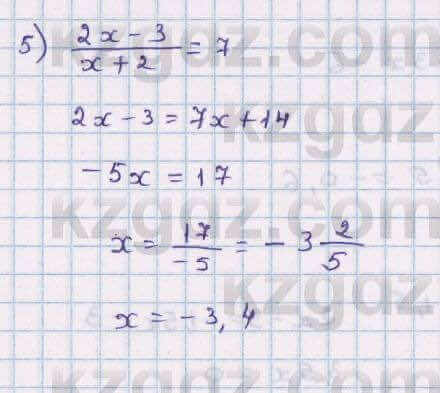 kzgdz.com
5) (2x - 3)/(x + 2) = 7
2x - 3 = 7x + 14
kzgdz
-5x = 17
kzgdz.com
x = 17/-5 = - 3 2/5
kzgdz
x = -3,4
kzgdz.com